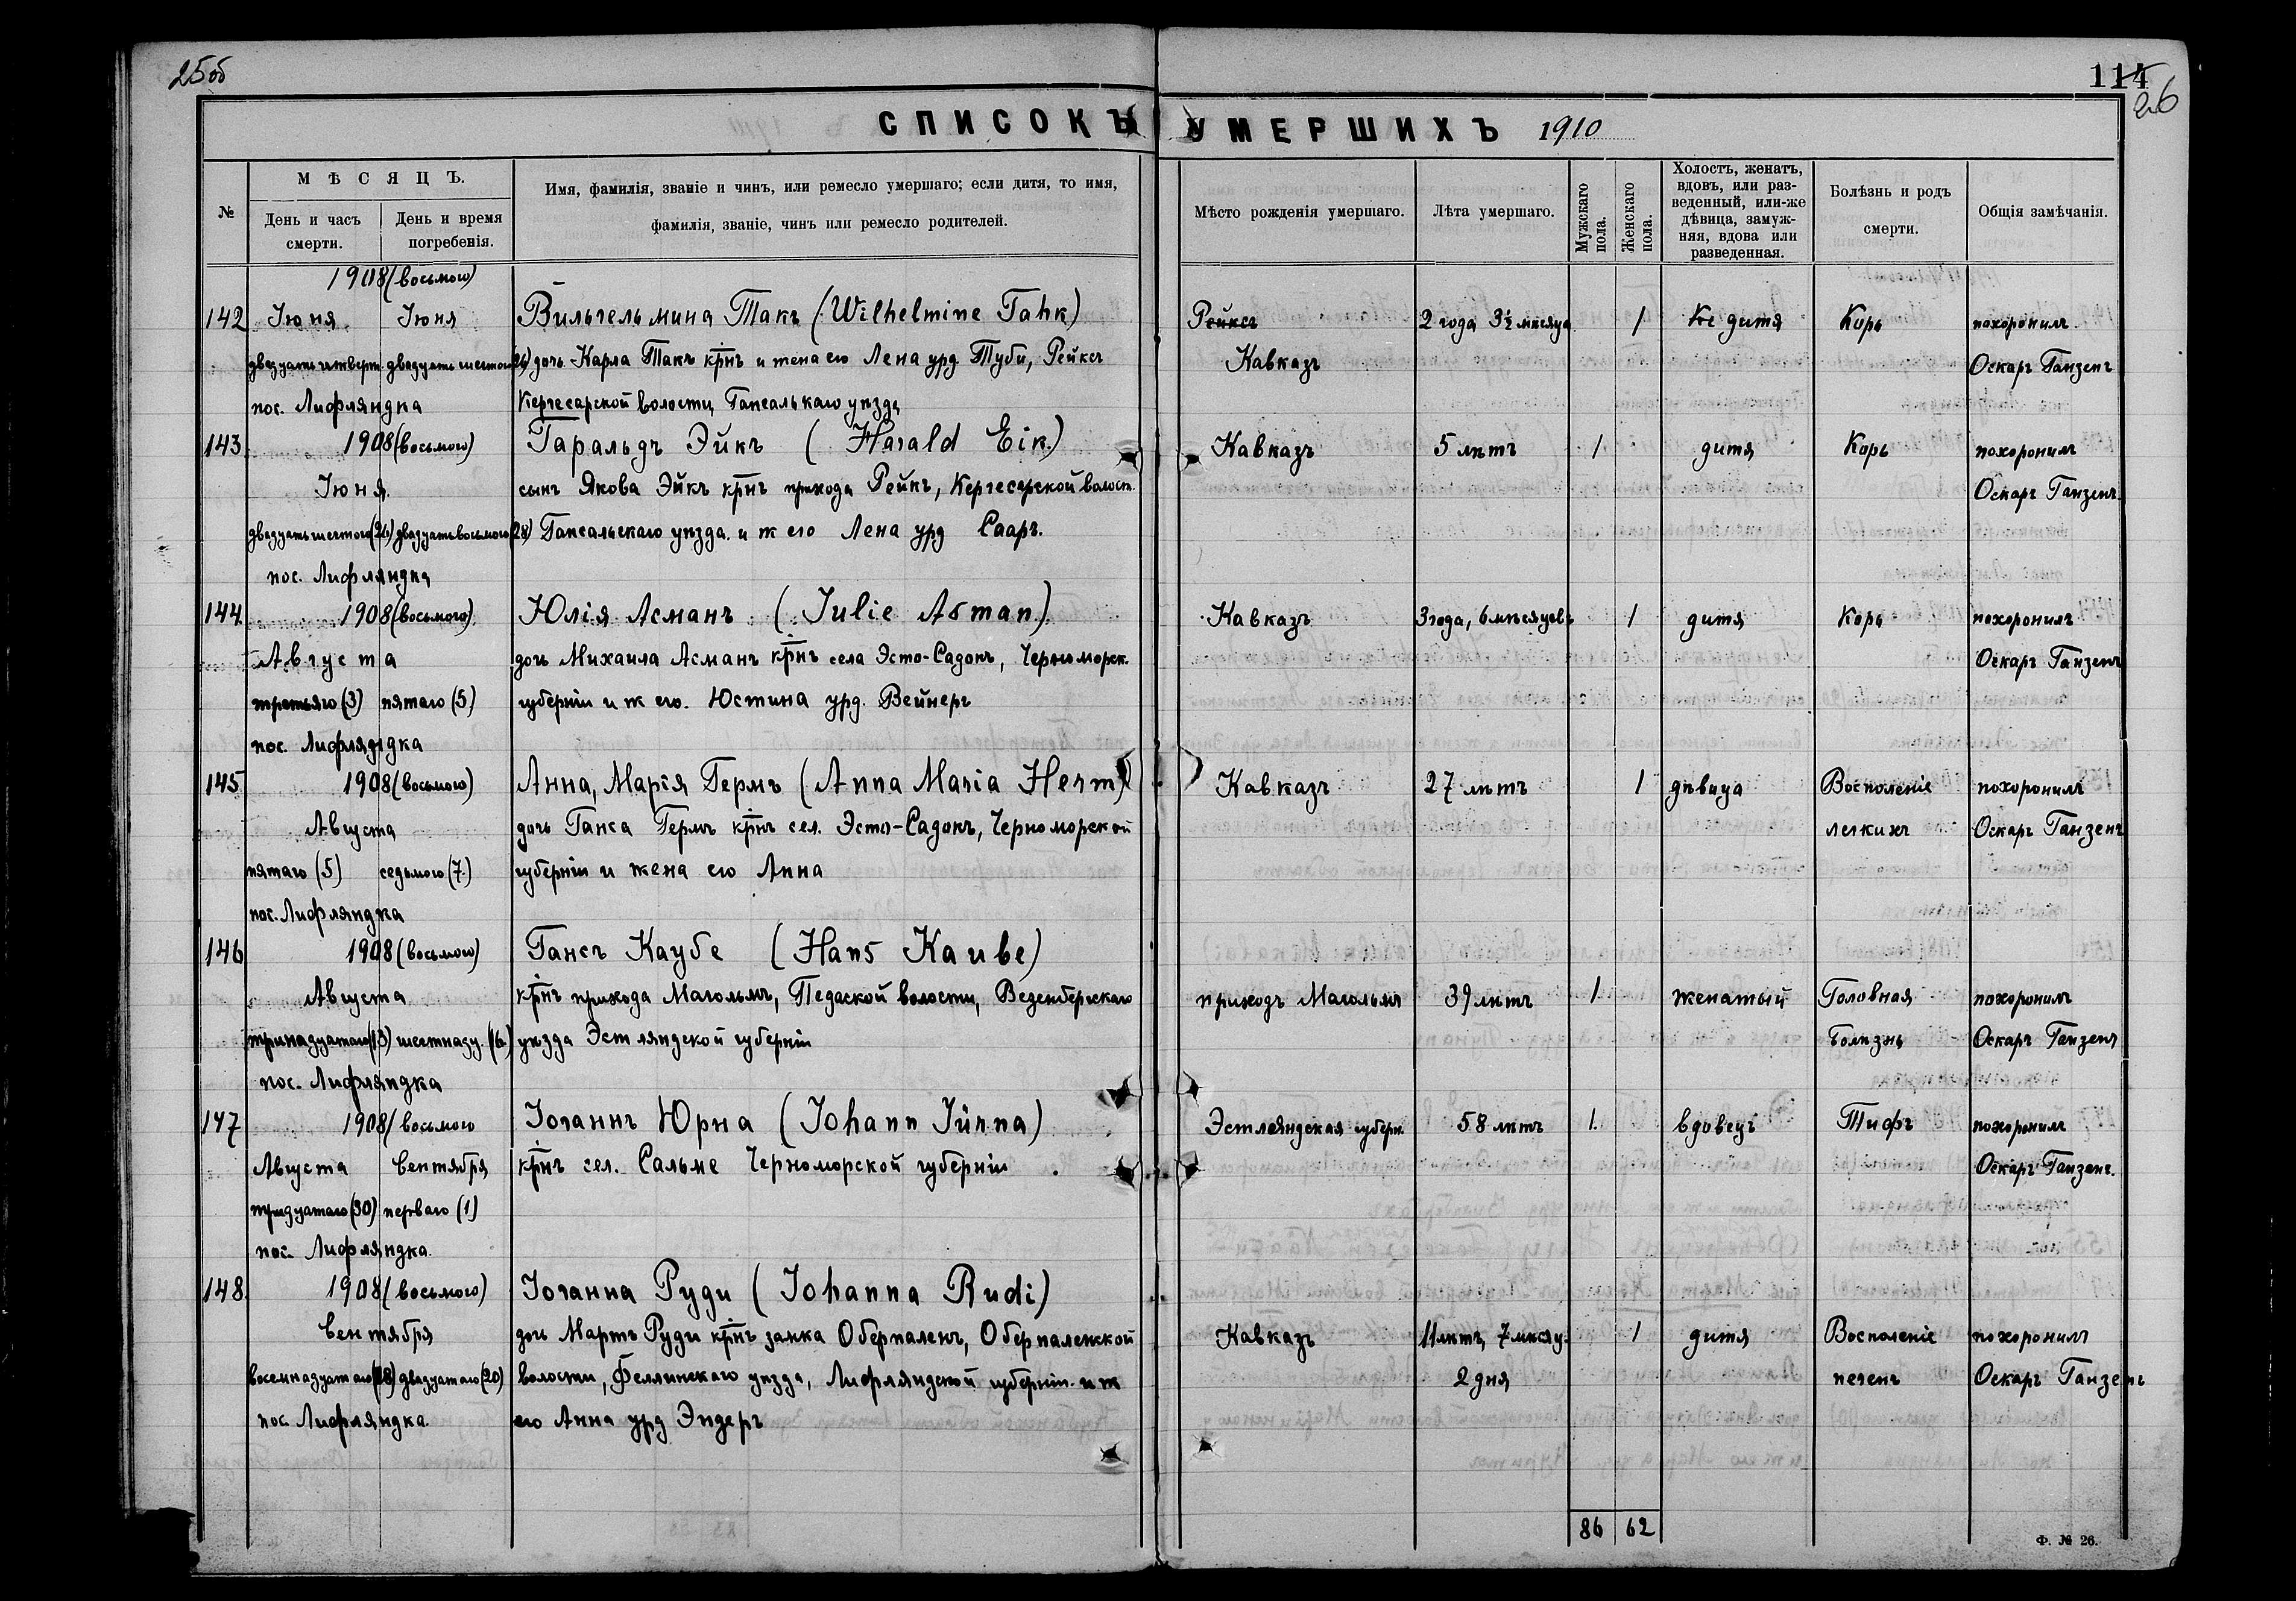 25об
114
26
СПИСОКЪ УМЕРШИХЪ 1910
№
МѢСЯЦЪ.
День и часъ смерти.
День и время погребенія.
Имя, фамилія, званіе и чинъ, или ремесло умершаго; если дитя, то имя,
фамилія, званіе, чинъ или ремесло родителей.
Мѣсто рожденія умершаго.
Лѣта умершаго.
Мужскаго пола.
Женскаго пола.
Холостъ, женатъ,
вдовъ, или раз-
веденный, или-же
дѣвица, замуж-
няя, вдова или
разведенная.
Болѣзнь и родъ
смерти.
Общія замѣчанія.
1908 (восьмого)
142 Іюня Іюня Вильгельмина Такъ (Wilhelmine Tahk) Рейксъ 2 года 3½ мѣсяца 1 дитя Корь похоронилъ
двадцать четверт. двадцать шестого (26) дочь Карла Такъ крнъ и жена его Лена урд Туби, Рейксъ Кавказъ Оскаръ Ганзенъ
пос. Лифляндка Кергесарской волости, Гапсальскаго уѣзда
143 1908 (восьмого) Гаральдъ Эйкъ (Harald Eik) Кавказъ 5 лѣтъ 1 дитя Корь похоронилъ
Іюня. сынъ Якова Эйкъ крнъ прихода Рейкъ, Кергесарской волост. Оскаръ Ганзенъ.
двадцать шестого (26) двадцать восьмого (28) Гапсальскаго уѣзда и ж его Лена урд Сааръ.
пос. Лифляндка
144 1908 (восьмого) Юлія Асманъ (Julie Asman) Кавказъ 3 года, 6 мѣсяцевъ 1 дитя Корь похоронилъ
Августа дочь Михаила Асманъ крнъ села Эсто-Садокъ, Черноморск. Оскаръ Ганзенъ
третьяго (3) пятаго (5) губерніи и ж его. Юстина урд. Вейнеръ
пос. Лифляндка
145 1908 (восьмого) Анна, Марія Гермъ (Anna Maria Herm) Кавказъ 27 лѣтъ 1 дѣвица Восполеніе похоронилъ
Августа дочь Ганса Гермъ крнъ сел. Эсто-Садокъ, Черноморской легкихъ Оскаръ Ганзенъ
пятаго (5) седьмого (7.) губерніи и жена его Анна
пос. Лифляндка
146 1908 (восьмого) Гансъ Каубе (Hans Kaube)
Августа крнъ прихода Магольмъ, Педаской волости, Везенбергскаго приходъ Магольмъ 39 лѣтъ 1 женатый Головная похоронилъ
тринадцатаго (13) шестнадц. (16) уѣзда Эстляндской губерніи болѣзнь Оскаръ Ганзенъ
пос. Лифляндка
147 1908 / восьмого Іоганнъ Юрна (Johann Jürna) Эстляндская губерн. 58 лѣтъ 1. вдовецъ Тифъ похоронилъ
Августа Сентября крнъ сел. Сальме Черноморской губерніи. Оскаръ Ганзенъ.
тридцатаго (30) перваго (1)
пос. Лифляндка.
148. 1908 (восьмого) Іоганна Руди (Johanna Rudi)
Сентября дочь Мартъ Руди крнъ замка Оберпаленъ, Оберпаленской Кавказъ 11 лѣтъ, 7 мѣсяц. 1 дитя Восполеніе похоронилъ
восемнадцатаго (18) двадцатаго (20) волости, Феллинскаго уѣзда, Лифляндской губерніи. и ж 2 дня печенъ Оскаръ Ганзенъ
пос. Лифляндка. его Анна урд Эндеръ
86 62
Ф. № 26.